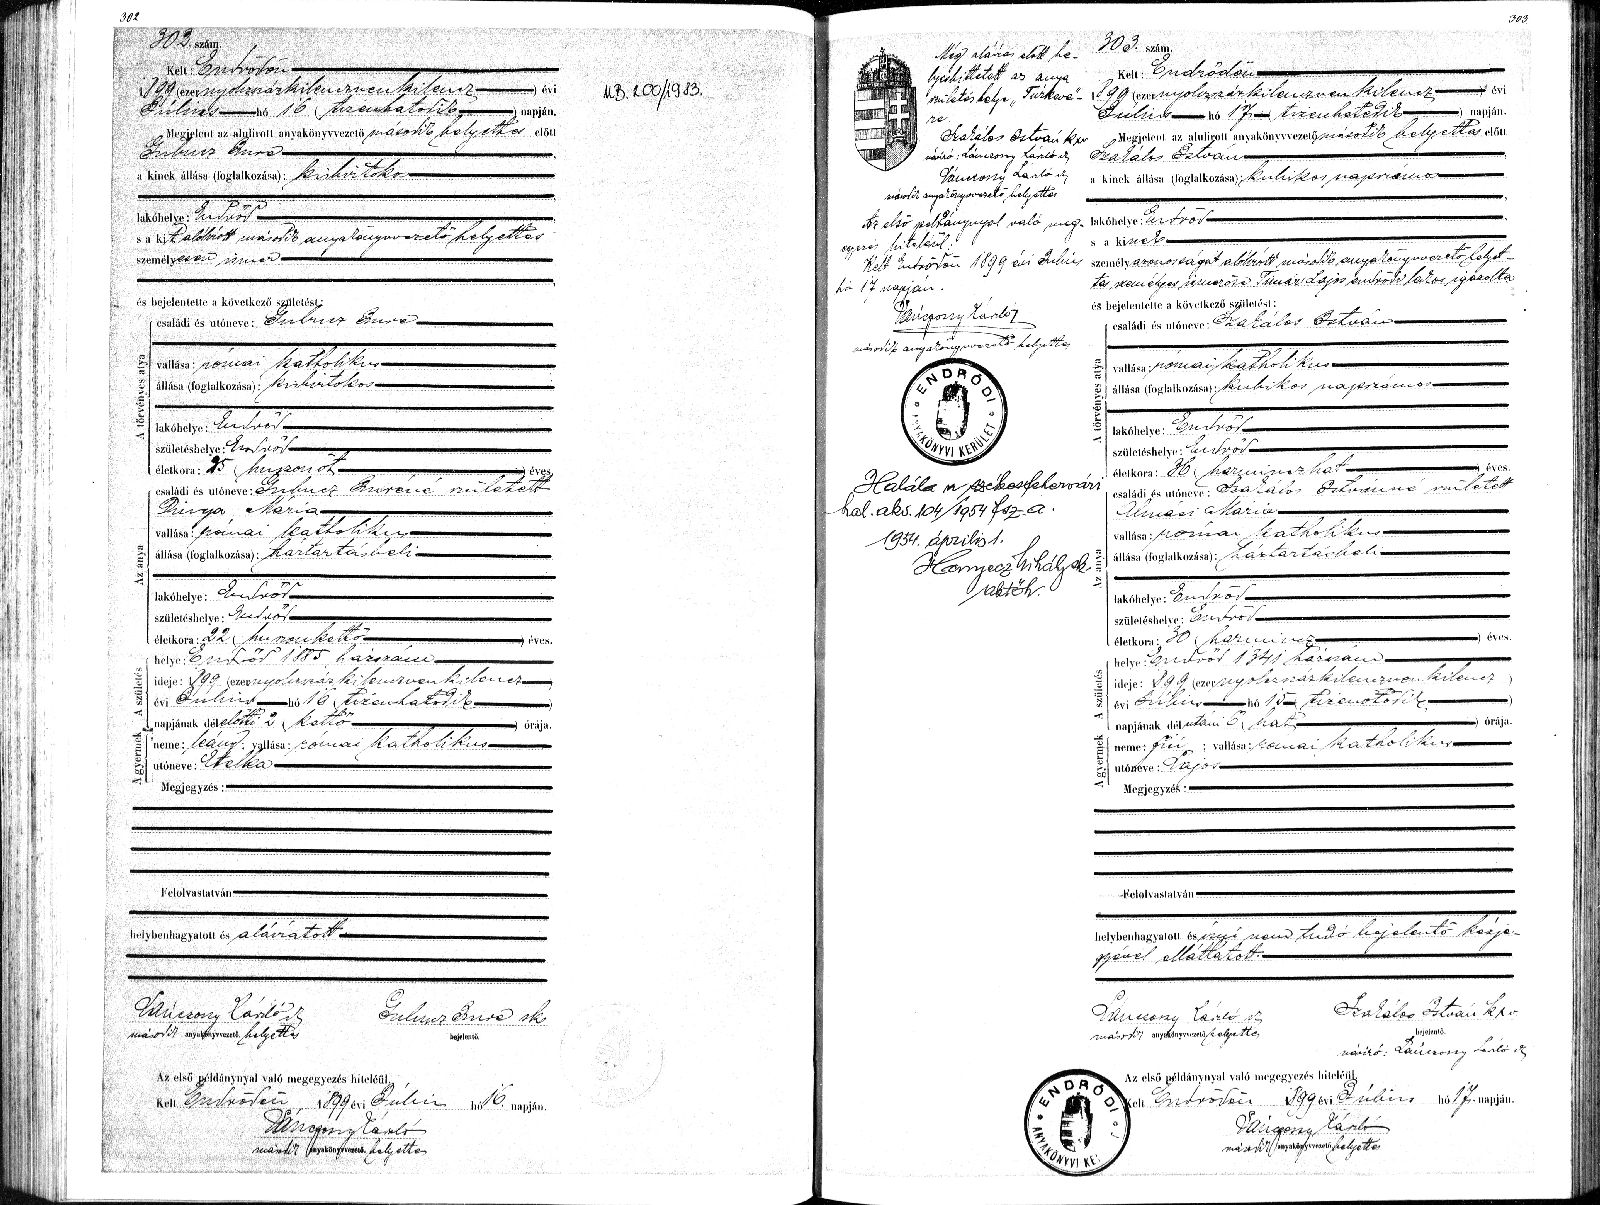 302
302. szám.
Kelt: Endrődön
1899 (ezernyolczszázkilenczvenkilencz) évi
Július hó 16 (tizenhatodik) napján.
Megjelent az alulirott anyakönyvvezető második helyettes előtt
Gubucz Imre
a kinek állása (foglalkozása): kisbirtokos
lakóhelye: Endrőd
s a kit alólírott második anyakönyvvezető helyettes
személyesen ismer
és bejelentette a következő születést:
A törvényes atya
családi és utóneve: Gubucz Imre
vallása: római katholikus
állása (foglalkozása): kisbirtokos
lakóhelye: Endrőd
születéshelye: Endrőd
életkora: 25 (huszonöt) éves
Az anya
családi és utóneve: Gubucz Imréné született
Mária
vallása: római katholikus
állása (foglalkozása): háztartásbeli
lakóhelye: Endrőd
születéshelye: Endrőd
életkora: 22 (huszonkettő) éves.
A születés
helye: Endrőd 1885 házszám
ideje: 1899 (ezernyolczszázkilenczvenkilencz)
évi Július hó 16 (tizenhatodik)
napjának délelőtti 2 (kettő) órája.
A gyermek
neme: leány. vallása: római katholikus
utóneve: Etelka
Megjegyzés:
Felolvastatván
helybenhagyatott és aláíratott
Gubucz Imre sk
második anyakönyvvezető helyettes
bejelentő.
Az első példánynyal való megegyezés hiteléül.
Kelt Endrődön, 1899 évi Július hó 16. napján.
második anyakönyvvezető helyettes
MB. 200/1983.
303
Még aláírás előtt be-
jegyeztetett az anya
születéshelye „Túrkeve"-
re
Szakálos István kxv
második anyakönyvvezető helyettes
Az első példánynyal való meg-
egyezés hiteléül.
Kelt Endrődön 1899 évi Július
hó 17 napján.
második anyakönyvvezető helyettes
ENDRŐDI
ANYAKÖNYVI KERÜLET
Halála a székesfehérvári
hal. aks. 104/1954 fsz. a.
1954. április 1.
Mihály sk.
303. szám.
Kelt: Endrődön
1899 (ezernyolczszázkilenczvenkilencz) évi
Július hó 17 (tizenhetedik) napján.
Megjelent az alulirott anyakönyvvezető második helyettes előtt
Szakálos István
a kinek állása (foglalkozása): kubikos napszámos
lakóhelye: Endrőd
s a kinek
személyazonosságát alólírott második anyakönyvvezető helyet-
tes személyes ismerőse Tímár Lajos endrődi lakos igazolta
és bejelentette a következő születést:
A törvényes atya
családi és utóneve: Szakálos István
vallása: római katholikus
állása (foglalkozása): kubikos napszámos
lakóhelye: Endrőd
születéshelye: Endrőd
életkora: 36 (harminczhat) éves.
Az anya
családi és utóneve: Szakálos Istvánné született
Almási Mária
vallása: római katholikus
állása (foglalkozása): háztartásbeli
lakóhelye: Endrőd
születéshelye: Endrőd
életkora: 30 (harmincz) éves.
A születés
helye: Endrőd 1341 házszám
ideje: 1899 (ezernyolczszázkilenczvenkilencz)
évi Július hó 15 (tizenötödik)
napjának délutáni 6 (hat) órája.
A gyermek
neme: fiú; vallása: római katholikus
utóneve: Lajos
Megjegyzés:
Felolvastatván
helybenhagyatott és írni nem tudó bejelentő kézje-
gyével elláttatott.
Szakálos István kxv
második anyakönyvvezető helyettes
bejelentő.
Az első példánynyal való megegyezés hiteléül.
Kelt Endrődön 1899 évi Július hó 17. napján.
második anyakönyvvezető helyettes
ENDRŐDI
ANYAKÖNYVI KE